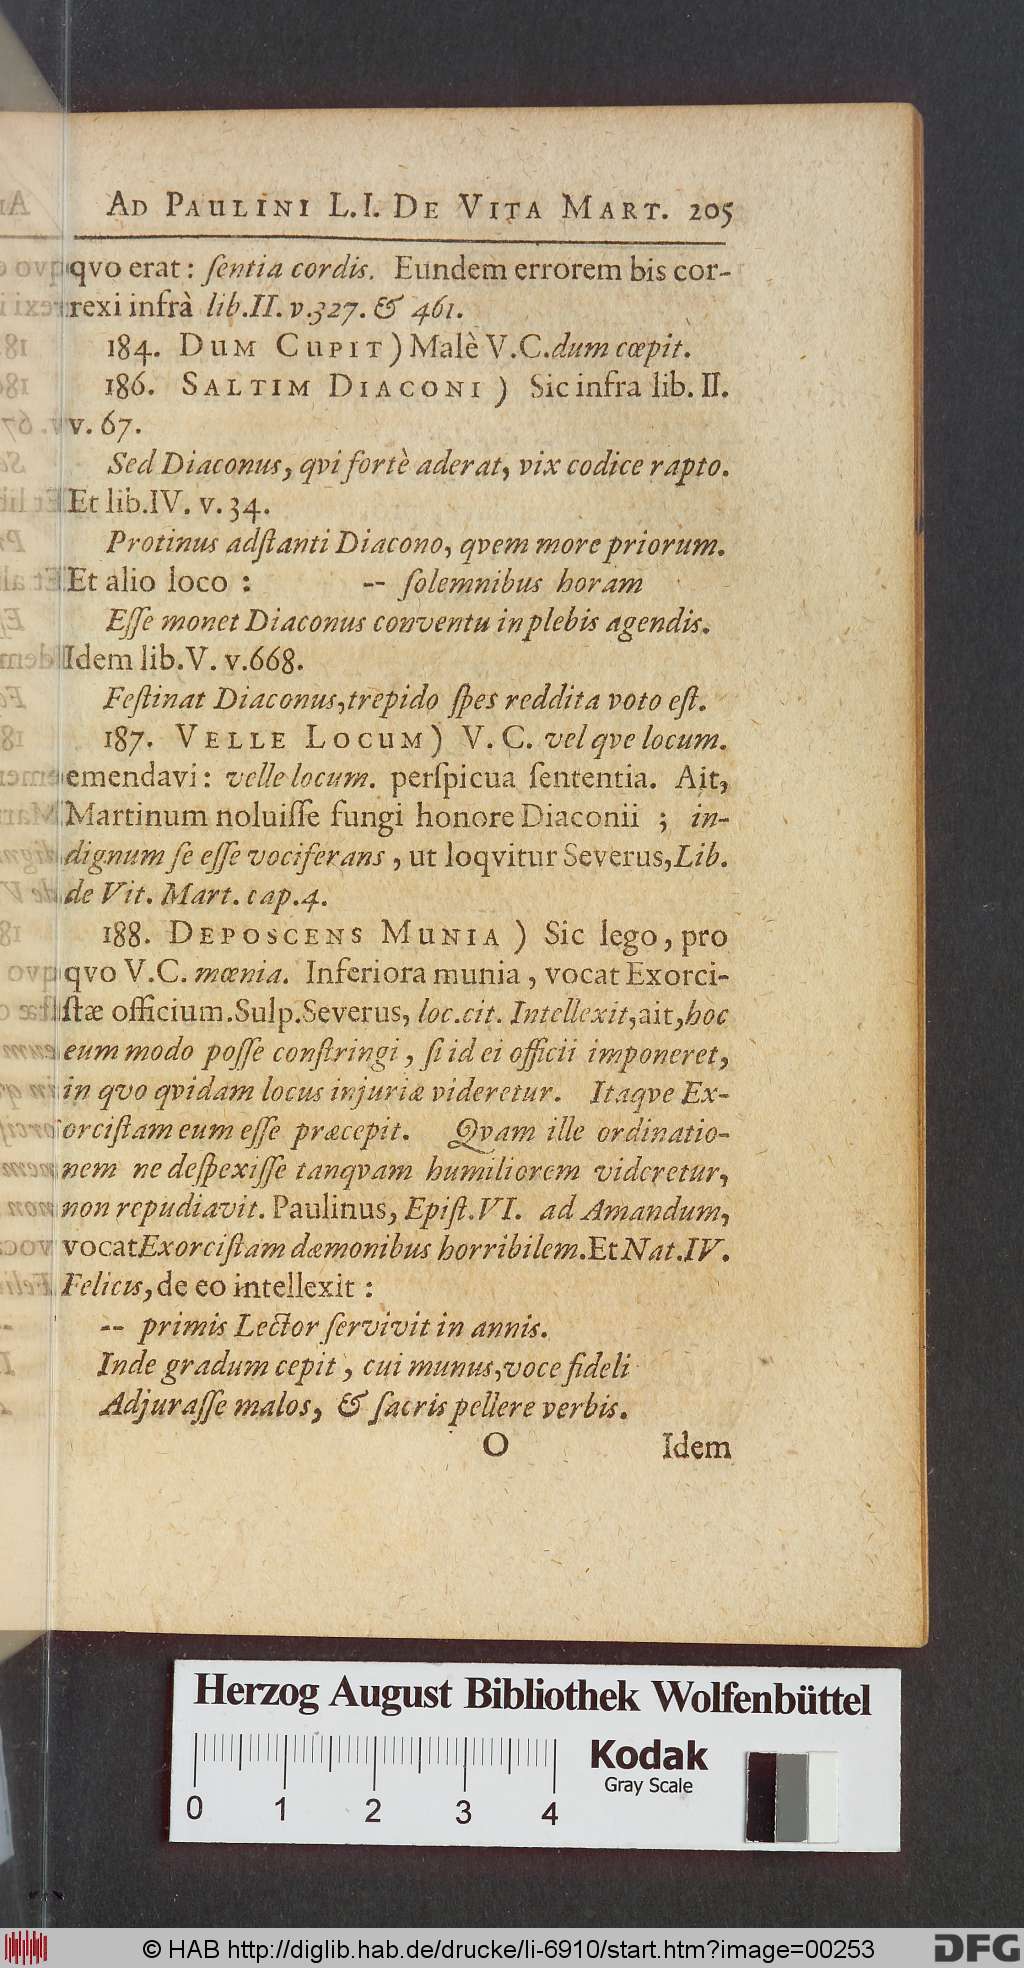 AD PAULINI L.I. DE VITA MART. 205
qvo erat: ſentia cordis. Eundem errorem bis cor-
rexi infrà lib.II. v.327. & 461.
184. DUM CUPIT) Malè V.C. dum cœpit.
186. SALTIM DIACONI) Sic infra lib. II.
v. 67.
Sed Diaconus, qvi fortè aderat, vix codice rapto.
Et lib.IV. v. 34.
Protinus adſtanti Diacono, qvem more priorum.
Et alio loco: -- ſolemnibus horam
Eſſe monet Diaconus conventu in plebis agendis.
Idem lib.V. v.668.
Feſtinat Diaconus, trepido ſpes reddita voto eſt.
187. VELLE LOCUM) V.C. vel qve locum.
emendavi: velle locum. perſpicua ſententia. Ait,
Martinum noluiſſe fungi honore Diaconii; in-
dignum ſe eſſe vociferans, ut loqvitur Severus, Lib.
de Vit. Mart. cap.4.
188. DEPOSCENS MUNIA) Sic lego, pro
qvo V.C. mœnia. Inferiora munia, vocat Exorci-
ſtæ officium. Sulp. Severus, loc.cit. Intellexit, ait, hoc
eum modo poſſe conſtringi, ſi id ei officii imponeret,
in qvo qvidam locus injuriæ videretur. Itaqve Ex-
orciſtam eum eſſe præcepit. Qvam ille ordinatio-
nem ne deſpexiſſe tanqvam humiliorem videretur,
non repudiavit. Paulinus, Epiſt.VI. ad Amandum,
vocat Exorciſtam dæmonibus horribilem. Et Nat.IV.
Felicis, de eo intellexit:
-- primis Lector ſervivit in annis.
Inde gradum cepit, cui munus, voce fideli
Adjuraſſe malos, & ſacris pellere verbis.
O Idem
Herzog August Bibliothek Wolfenbüttel
Kodak
Gray Scale
0 1 2 3 4
© HAB http://diglib.hab.de/drucke/li-6910/start.htm?image=00253
DFG